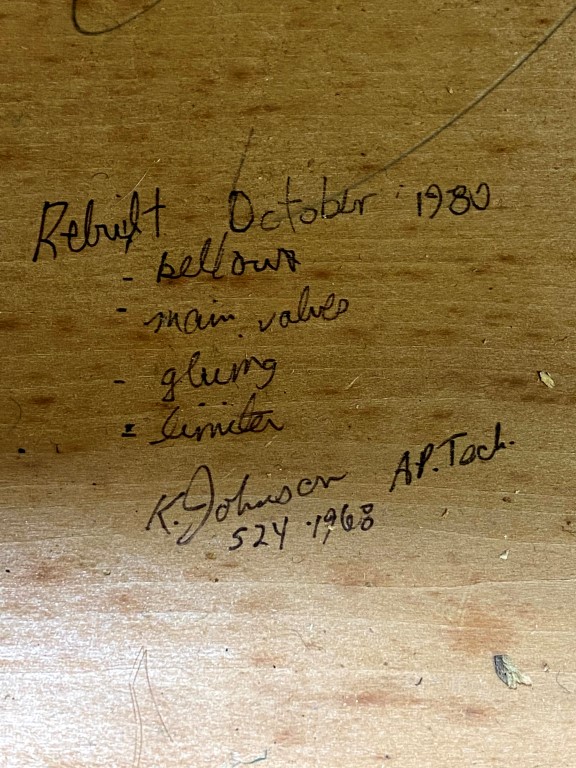 Rebuilt October 1980
- bellows
- main valves
- gluing
- limiter
K. Johnson AP. Tech.
524 · 1968